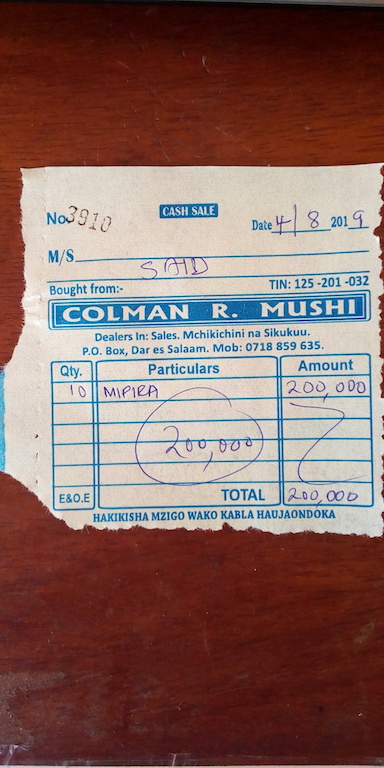 CASH SALE
No. 3910
Date 4/8 2019
M/S SAID
Bought from:- TIN: 125 -201 -032
COLMAN R. MUSHI
Dealers In: Sales. Mchikichini na Sikukuu.
P.O. Box, Dar es Salaam. Mob: 0718 859 635.
Qty. Particulars Amount
10 MIPIRA 200,000
200,000
E&O.E TOTAL 200,000
HAKIKISHA MZIGO WAKO KABLA HAUJAONDOKA